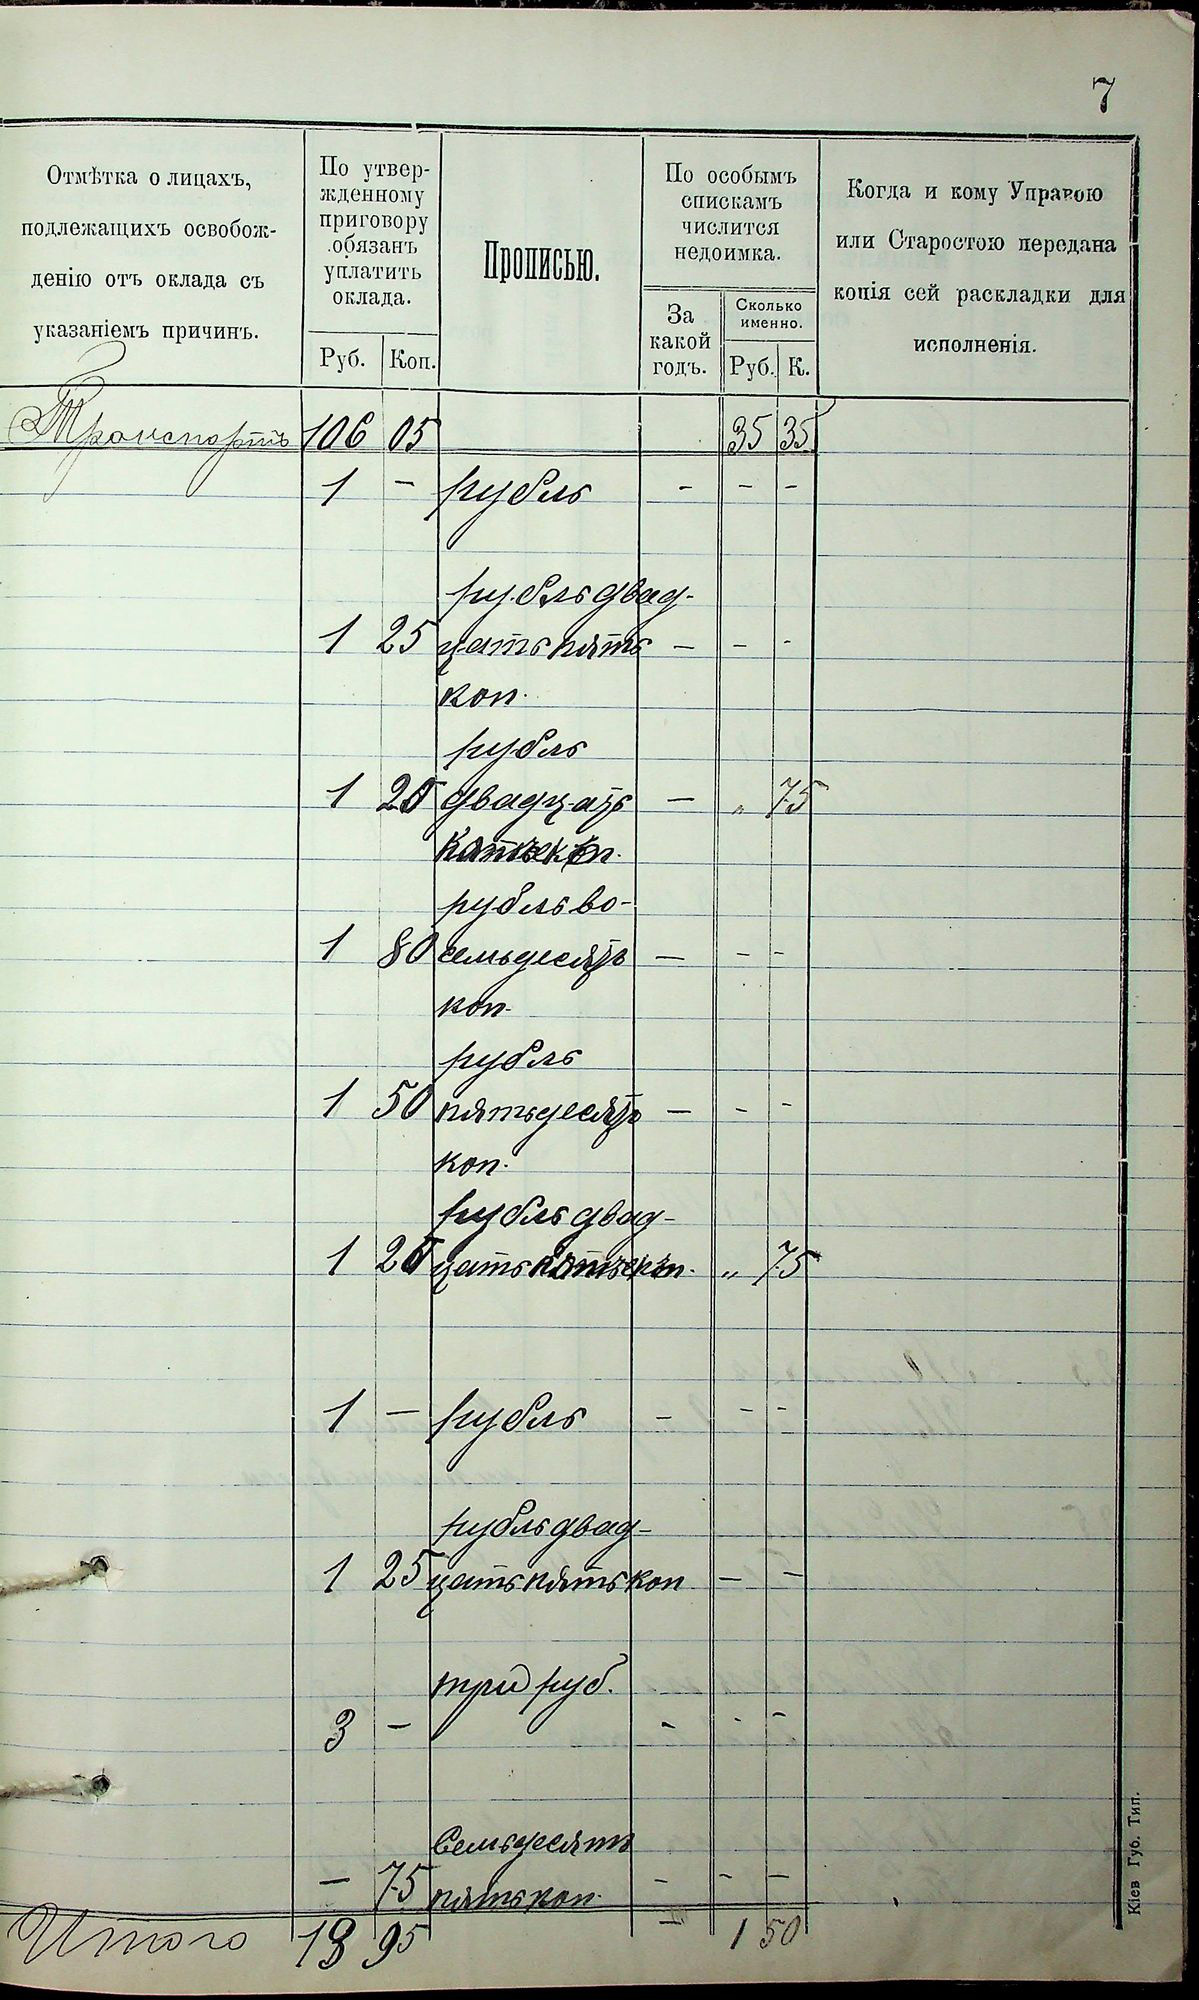 7
Отмѣтка о лицахъ,
подлежащихъ освобож-
денію отъ оклада съ
указаніемъ причинъ.
По утвер-
жденному
приговору
обязанъ
уплатить
оклада.
Руб. Коп.
Прописью.
По особымъ
спискамъ
числится
недоимка.
За
какой
годъ.
Сколько
именно.
Руб. К.
Когда и кому Управою
или Старостою передана
копія сей раскладки для
исполненія.
Транспортъ 106 05 35 35
1 - рубль - - -
рубль двад-
1 25 цать пять - - -
коп.
рубль
1 25 двадцать - „ 75
пять коп.
рубль во-
1 80 семьдесятъ - - -
коп.
рубль
1 50 пятьдесятъ - - -
коп.
рубль двад-
1 25 цать пять коп. „ 75
1 - рубль - - -
рубль двад-
1 25 цать пять коп - -
три руб.
3 - - - -
Семьдесятъ
- 75 пять коп. - - -
Итого 13 95 - 1 50
Кіев Губ. Тип.